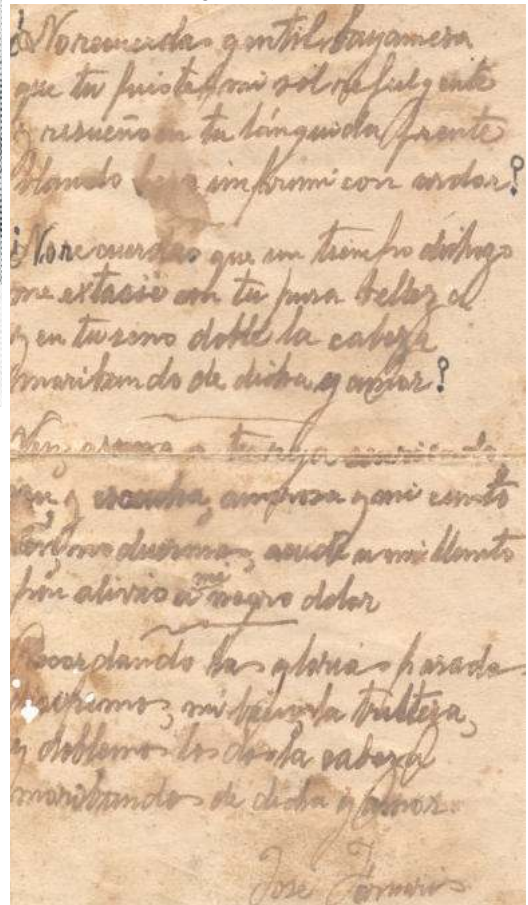 ¿No recuerdas gentil bayamesa
que tu fuistes mi sol refulgente
y risueño en tu lánguida frente
blando beso imprimi con ardor?
¿No recuerdas que un tiempo dichozo
me extasié con tu pura belleza
y en tu seno doblé la cabeza
moribundo de dicha y amor?
Ven asoma a tu reja sonriendo
ven y escucha amorosa mi canto
ven, no duermas, acude a mi llanto
pon alivio a mi negro dolor
Recordando las glorias pasadas
disipemos, mi bien, la tristeza,
y doblemos los dos la cabeza
moribundos de dicha y amor.
José Fornaris